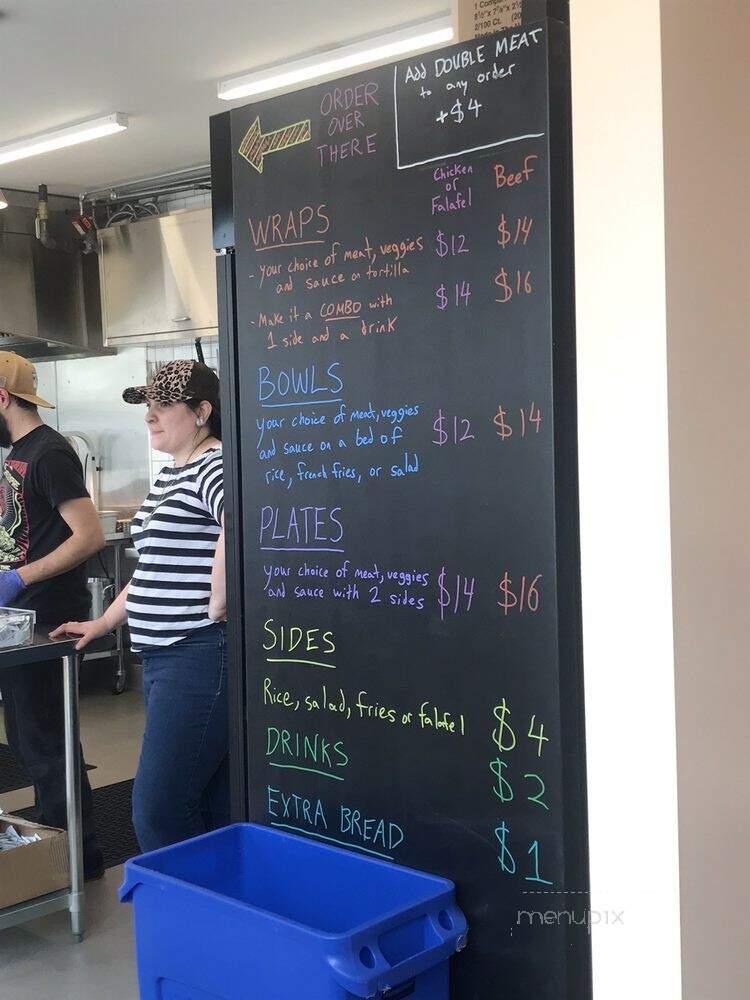 1 Comp
2/100 Ct.
ORDER
OVER
THERE
Add DOUBLE MEAT
to any order
+$4
Chicken
or
Falafel
Beef
WRAPS
- your choice of meat, veggies $12 $14
and sauce on tortilla
- Make it a COMBO with $14 $16
1 side and a drink
BOWLS
your choice of meat, veggies
and sauce on a bed of $12 $14
rice, french fries, or salad
PLATES
your choice of meat, veggies
and sauce with 2 sides $14 $16
SIDES
Rice, salad, fries or falafel $4
DRINKS $2
EXTRA BREAD $1
menupix